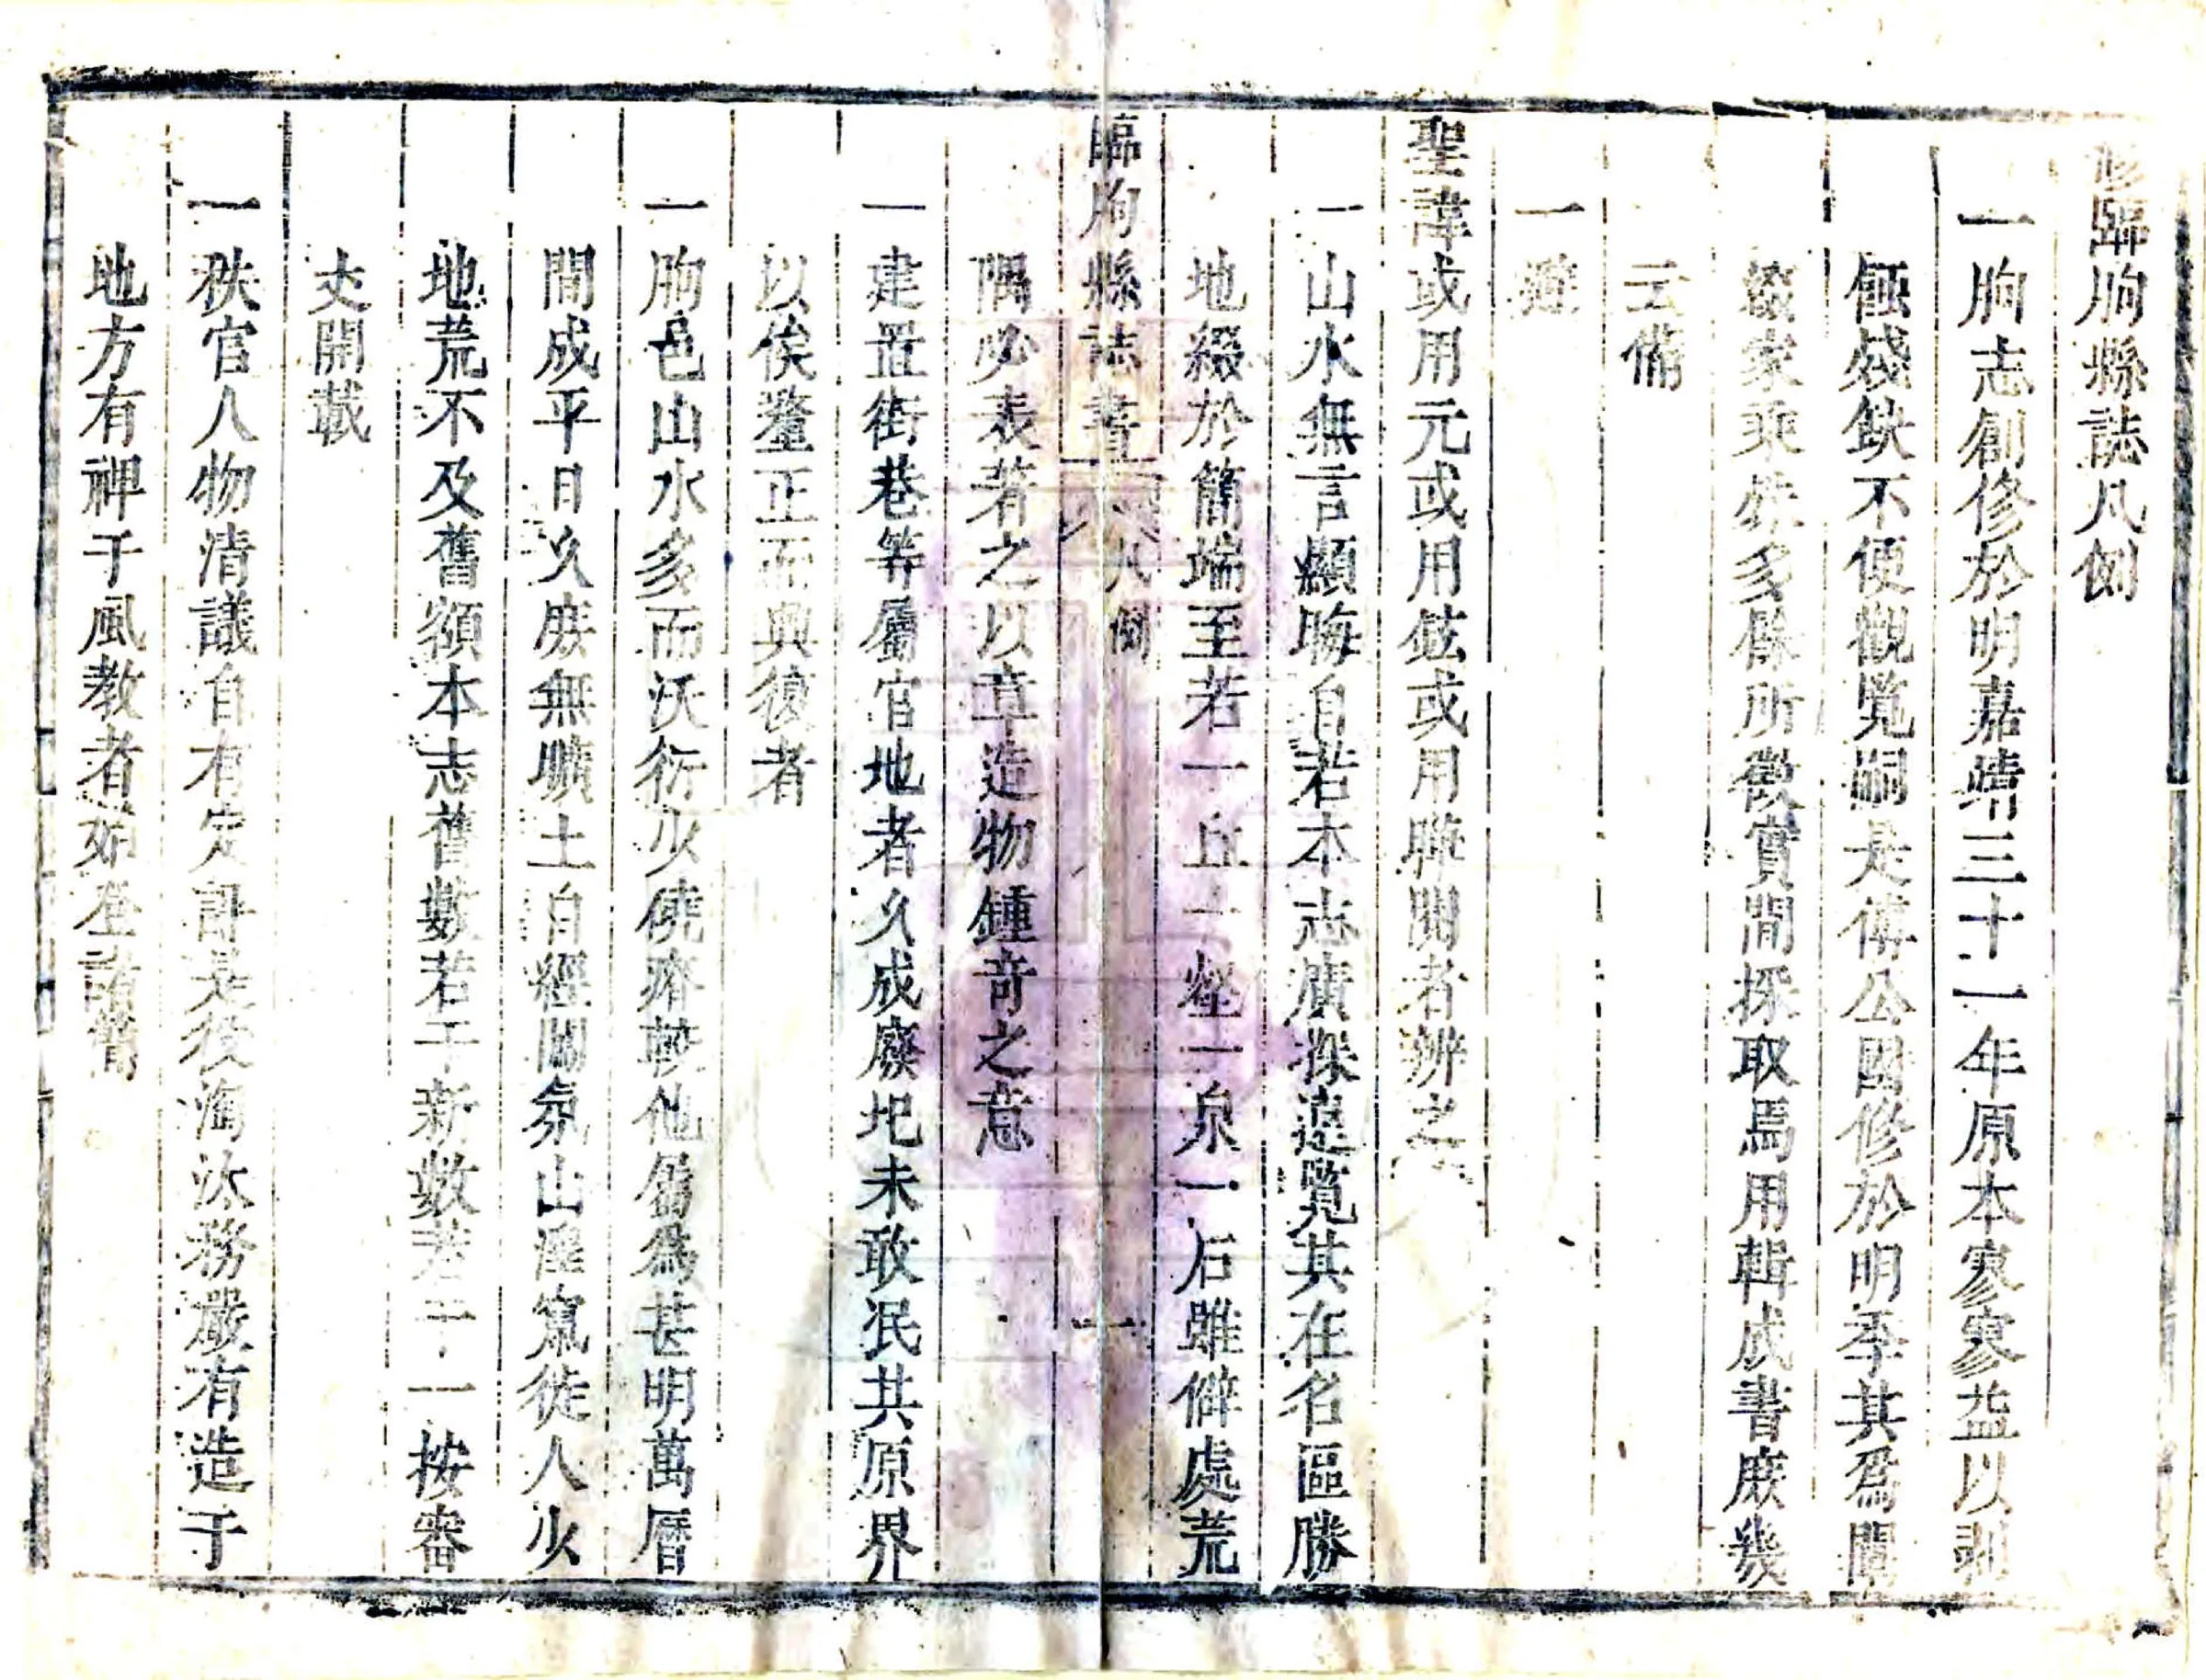 修臨朐縣誌凡例
一朐志創修於明嘉靖三十一年原本寥寥益以剥
蝕殘缺不便觀覽嗣是傅公國修於明季其爲闡
家乘多所徵實間採取焉用輯成書庶幾
云備
一遵
聖諱或用元或用鉉或用縣閱者辨之
一山水無言顯晦自若本志廣探遠覽其在名區勝
地綴於簡端至若一丘一壑一泉一石雖僻處荒
隅必表著之以章造物鍾奇之意
臨朐縣誌書 凡例 一
一建置街巷等屬官地者久成廢圮未敢泯其原界
以俟釐正而興復者
一朐邑山水多而沃衍少磽瘠較他邑爲甚明萬曆
間成平日久庶無曠土自經闖氛山滛寇徙人少
地荒不及舊額本志舊數若干新數若干一按審
丈開載
一秩官人物清議自有定評是役淘汰務嚴有造于
地方有裨于風教者始登諸簡